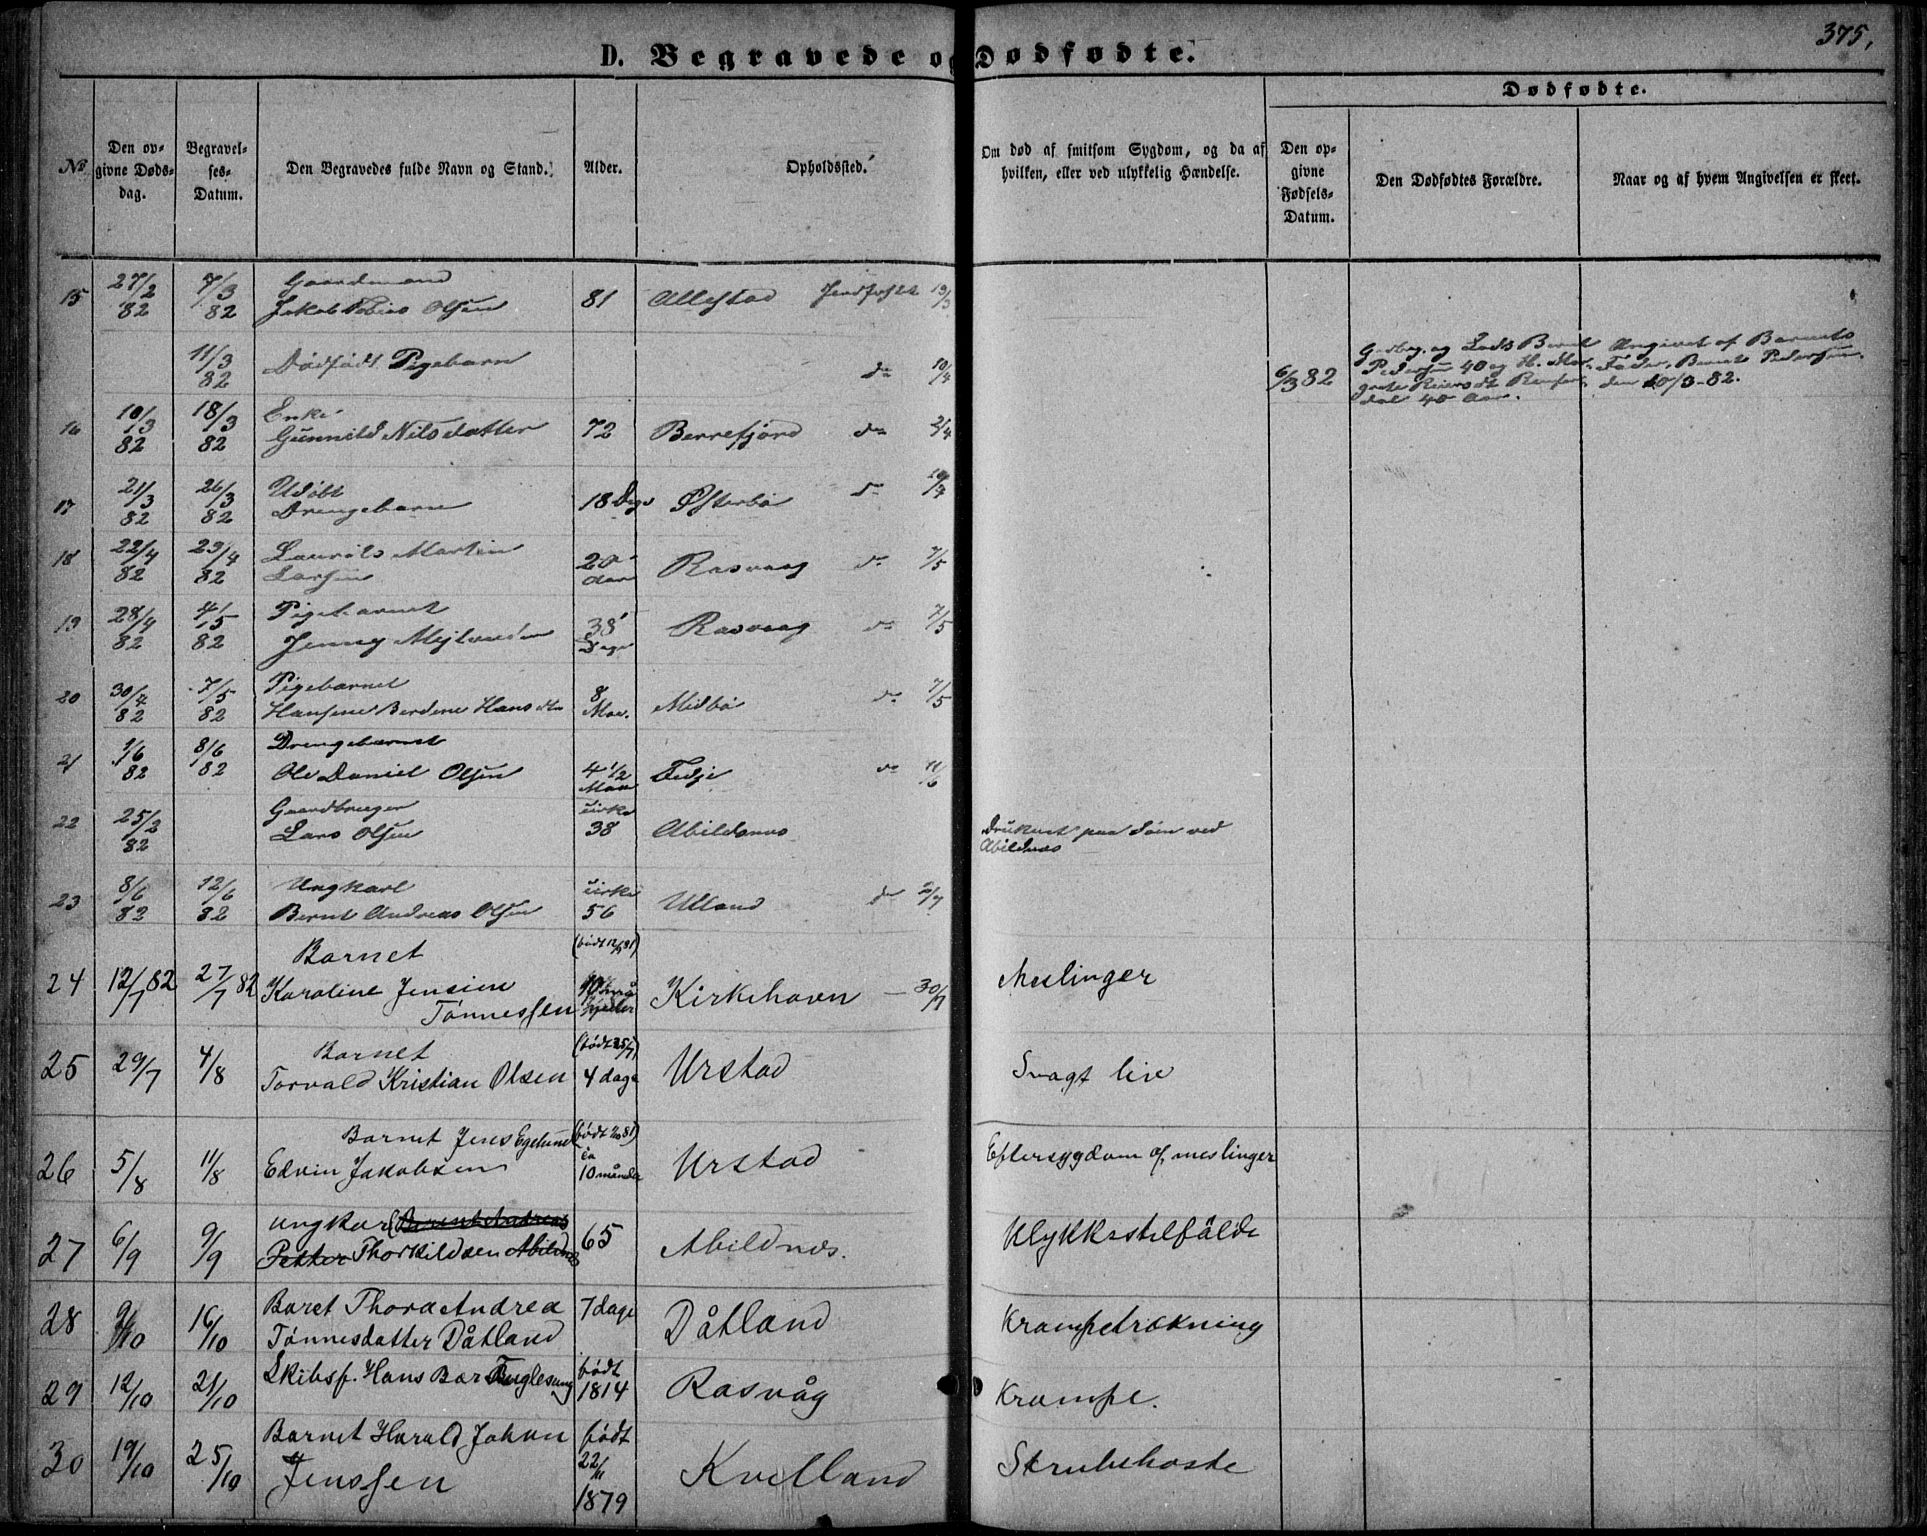 375.
D. Begravede og Dødfødte.
Dødfødte.
No
Den op-
givne Døds-
dag.
Begravel-
ses-
Datum.
Den Begravedes fulde Navn og Stand.
Alder.
Opholdssted.
Om død af smitsom Sygdom, og da af
hvilken, eller ved ulykkelig Hændelse.
Den op-
givne
Fødsels-
Datum.
Den Dødfødtes Forældre.
Naar og af hvem Angivelsen er skeet.
15 27/2 82 7/3 82 Gaardmand
Jakob Tobias Olsen 81 Allestad Jordfæstet 19/3
11/3 82 Dødfødt Pigebarn do 10/4
6/3 82
Gaardbrg. og Lods Bernt
Pedersen 40 og H. Mar-
grete Reiersdt Rensfer-
dal 40 Aar.
Angivet af Barnets
Fader, Bernt Pedersen
den 10/3-82.
16 10/3 82 18/3 82 Enke
Gunnild Nilsdatter 72 Berrefjord do 2/4
17 21/3 82 26/3 82 Udøbt
Drengebarn 18 Dage Østerbø do 10/4
18 22/4 82 29/4 82 Laurits Martin
Larsen 20 Aar Rasvaag do 7/5
19 28/4 82 4/5 82 Pigebarnet
Jenny Mejlænder 38 Dage Rasvaag do 7/5
20 30/4 82 7/5 82 Pigebarnet
Hansene Berdene Hansdtr 8 Maa. Midbø do 7/5
21 1/6 82 8/6 82 Drengebarnet
Ole Daniel Olsen 4 1/2 Maa Fedje do 11/6
22 25/2 82 Gaardbruger
Lars Olsen cirka 38 Abildsnæs Druknet paa Søen ved
Abildnæs
23 8/6 82 12/6 82 Ungkarl
Bernt Andreas Olsen cirka 56 Ulland do 2/7
24 12/7 82 27/7 82 Barnet (født 12/9 81)
Karoline Jensine
Tønnessen Kirkehavn — 30/7 Meslinger
25 29/7 4/8 Barnet (født 25/7)
Torvald Kristian Olsen 4 dage Urstad Svagt liv
26 5/8 11/8 Barnet Jens Egelund
Edvin Jakobsen ca 10 måneder Urstad Eftersygdom af meslinger
27 6/9 9/9 ungkarl Bernt Andreas
Petter Thorkildsen Abildnæs 65 Abildnæs. Ulykkestilfælde
28 9/10 16/10 Baret Thora Andrea 7 dage
Tønnesdatter Dåtland Dåtland Krampetrækning
29 12/10 21/10 Skibsf. Hans Bær Fuglesang født 1814 Rasvåg Krampe.
30 19/10 25/10 Barnet Harald Johan født
Jenssen 22/11 1879 Kvelland Skrubehoste